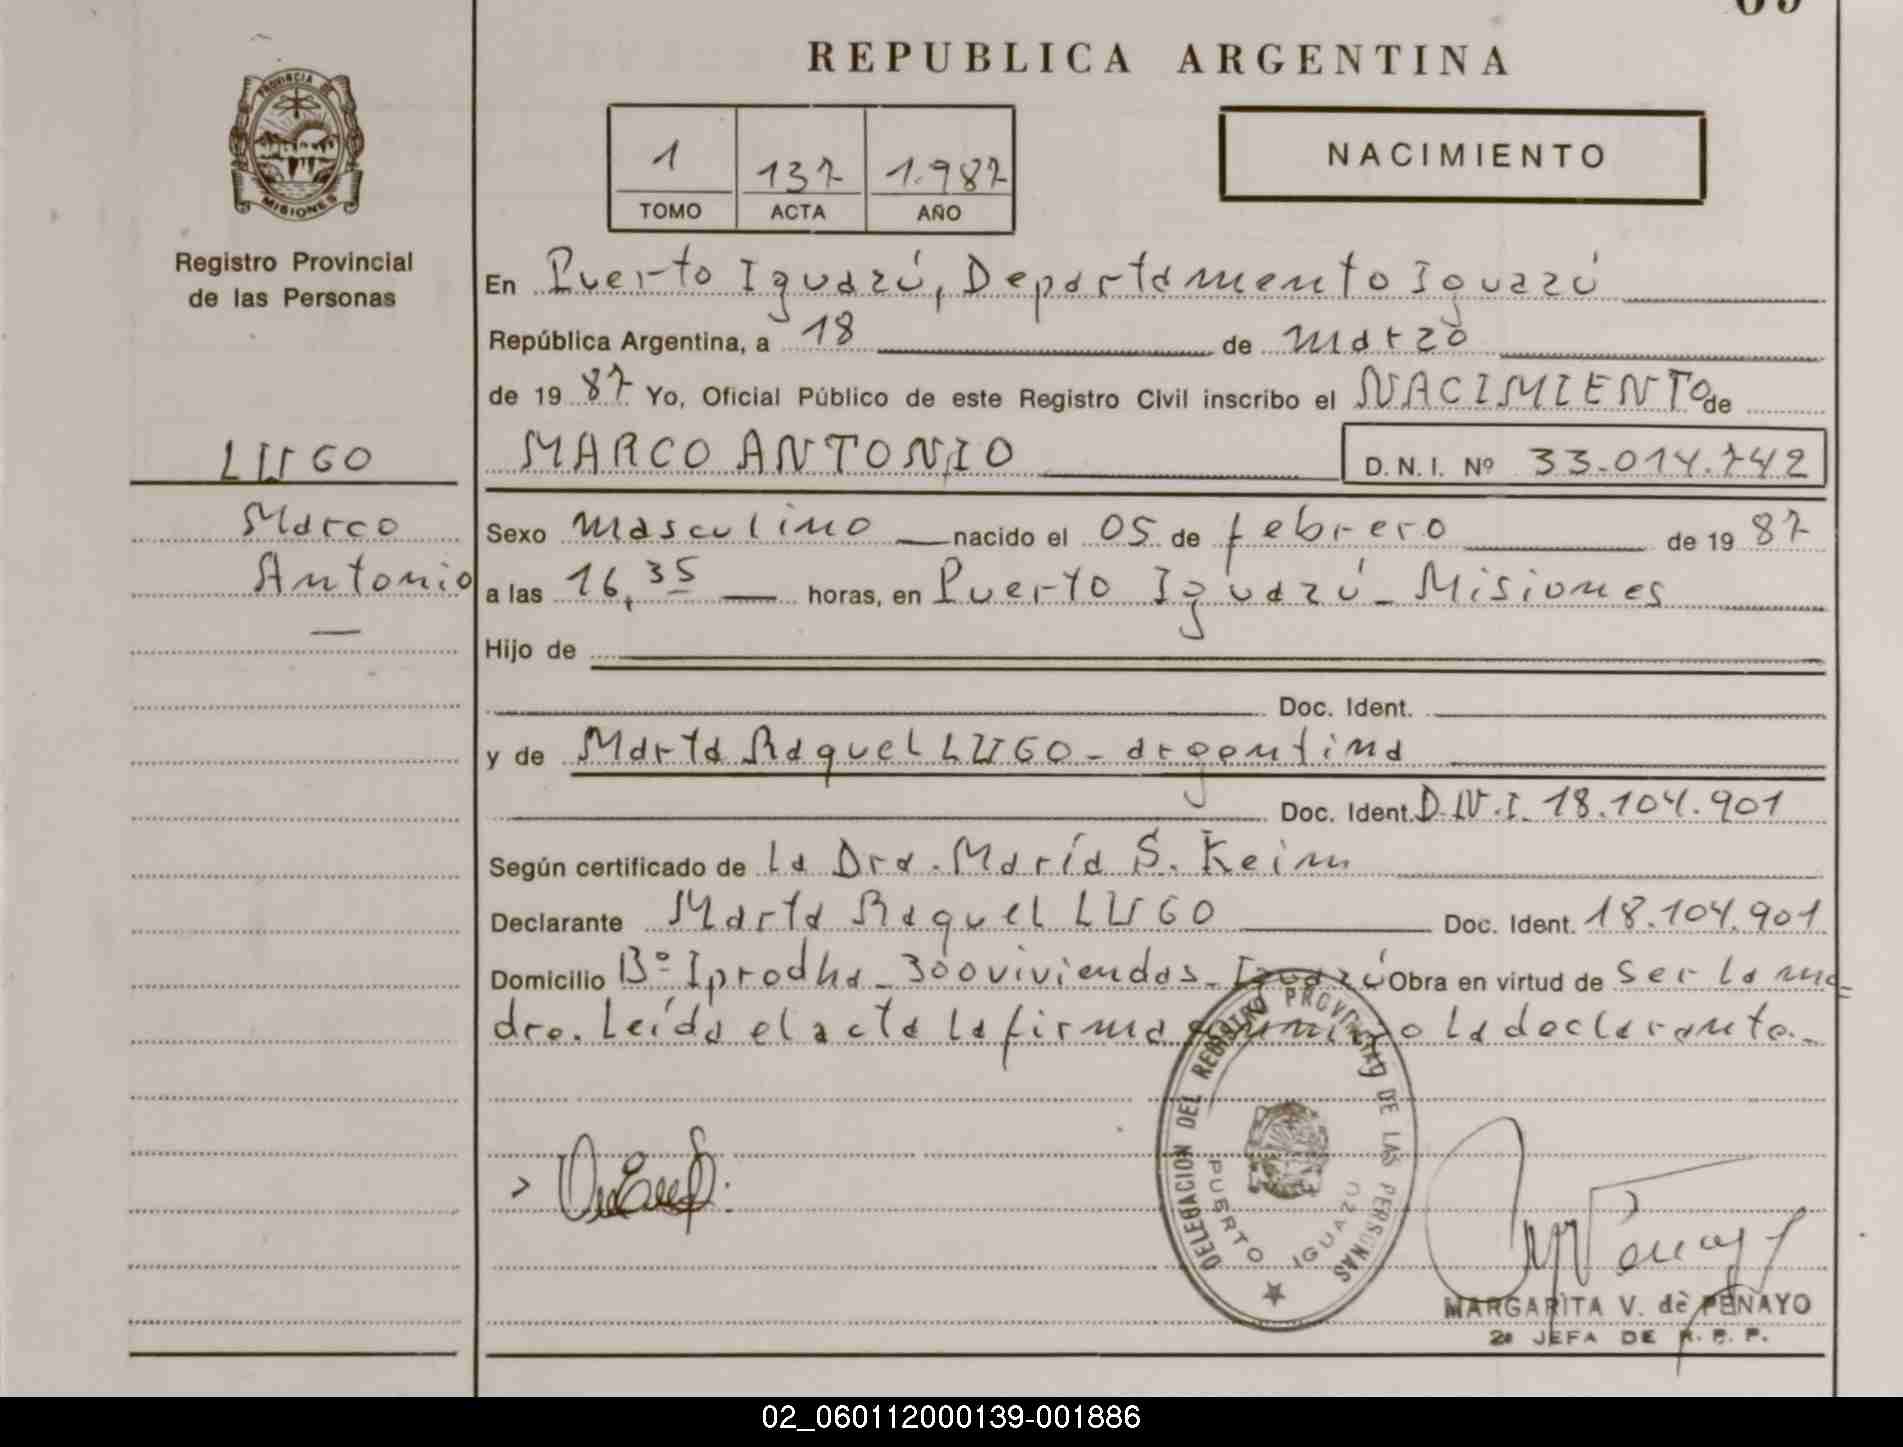 PROVINCIA DE
MISIONES
Registro Provincial
de las Personas
LUGO
Marco
Antonio
REPUBLICA ARGENTINA
1 137 1.987
TOMO ACTA AÑO
NACIMIENTO
En Puerto Iguazú, Departamento Iguazú
República Argentina, a 18 de marzo
de 19 87 Yo, Oficial Público de este Registro Civil inscribo el NACIMIENTO de
MARCO ANTONIO D. N. I. Nº 33.014.742
Sexo masculino nacido el 05 de febrero de 19 87
a las 16,35 horas, en Puerto Iguazú - Misiones
Hijo de
Doc. Ident.
y de Marta Raquel LUGO - argentina
Doc. Ident. D.N.I. 18.104.901
Según certificado de la Dra. María S. Keim
Declarante Marta Raquel LUGO Doc. Ident. 18.104.901
Domicilio Bº Iprodha - 300 viviendas - Iguazú Obra en virtud de ser la ma=
dre. Leída el acta la firma conmigo la declarante.-
DELEGACION DEL REGISTRO PROVINCIAL DE LAS PERSONAS
PUERTO IGUAZU
MARGARITA V. de PENAYO
2a JEFA DE R. P. P.
02_060112000139-001886